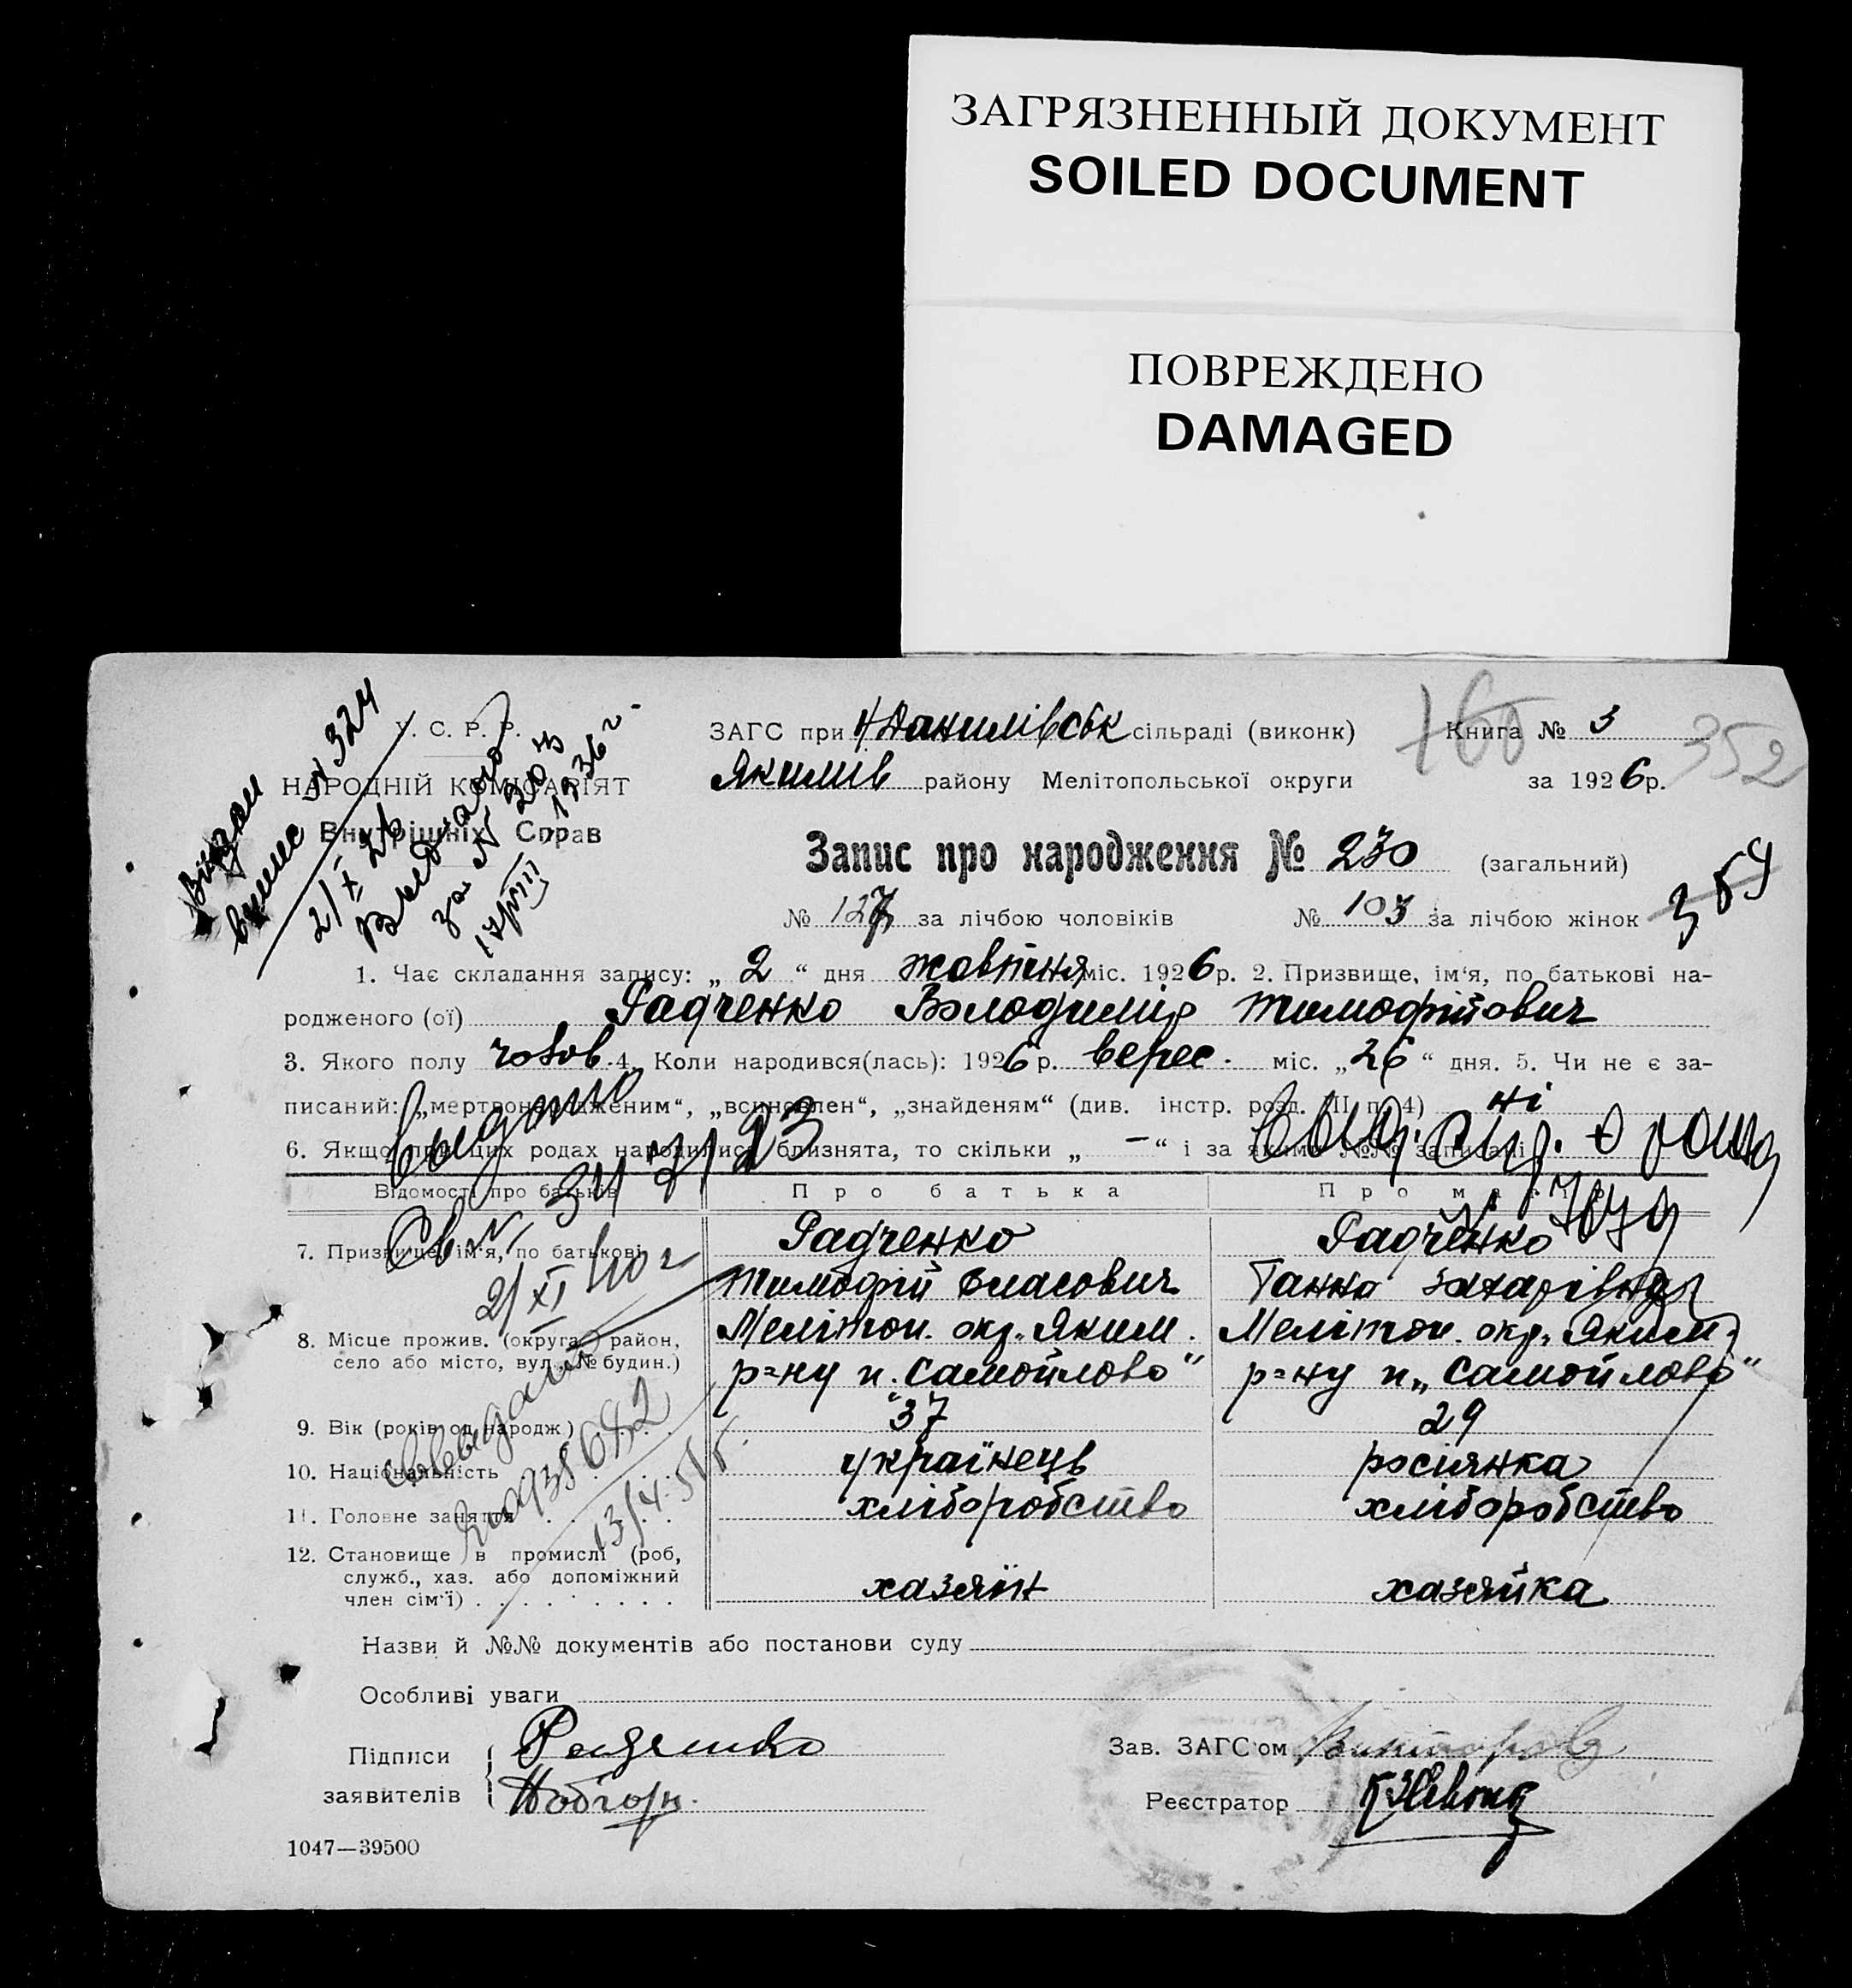 ЗАГРЯЗНЕННЫЙ ДОКУМЕНТ
SOILED DOCUMENT
ПОВРЕЖДЕНО
DAMAGED
У. С. Р. Р.
НАРОДНІЙ КОМІСАРІЯТ
Внутрішніх Справ
Видан
випис № 324
2/X 26
ЗАГС при Н Данилівськ сільраді (виконк)
Якимів району Мелітопольської округи
160
Книга № 3
за 1926 р.
352
Запис про народження № 230 (загальний)
№ 127 за лічбою чоловіків № 103 за лічбою жінок
354
1. Чає складання запису: „ 2 “ дня жовтня міс. 1926 р. 2. Призвище, ім‘я, по батькові на-
родженого (ої) Радченко Володимір Тимофійович
3. Якого полу чолов. 4. Коли народився(лась): 1926 р. верес. міс. „26“ дня. 5. Чи не є за-
писаний: „мертвонародженим“, „всиновлен“, „знайденям“ (див. інстр. розд. III п. 4) ні
6. Якщо при цих родах народилися близнята, то скільки „ — “ і за якими №№ записані
Відомості про батьків
Про батька
Про матір
7. Призвище, ім‘я, по батькові
Радченко
Тимофій Власович
Радченко
Ганна Захарівна
8. Місце прожив. (округа, район,
село або місто, вул., № будин.)
Мелітоп. окр. Яким.
р=ну п. „Самойлово“
Мелітоп. окр. Яким.
р=ну п. „Самойлово“
9. Вік (років од народж.)
37
29
10. Національність
українець
росіянка
11. Головне заняття
хліборобство
хліборобство
12. Становище в промислі (роб,
служб., хаз. або допоміжний
член сім‘ї)
хазяїн
хазяйка
Назви й №№ документів або постанови суду
Особливі уваги
Підписи
заявителів
Радченко
Зав. ЗАГС‘ом
Реєстратор
1047—39500